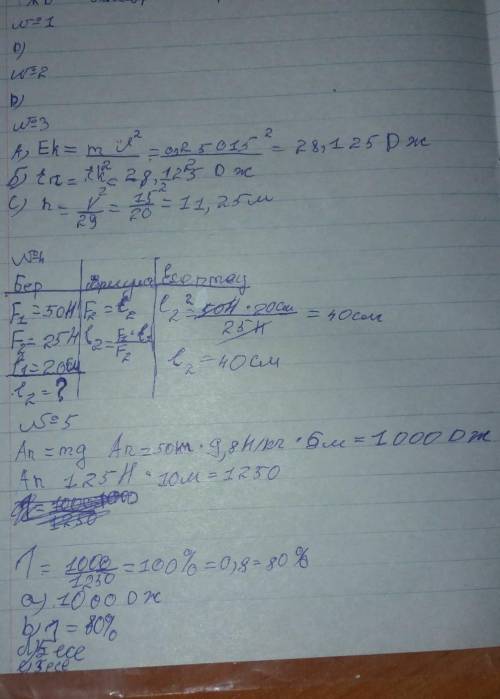 №1
D)
№2
D)
№3
A) Ek = m v² / 2 = 0,25·15² / 2 = 28,125 Dж
Б) En = Ek = 28,125 Dж
C) h = v² / 2g = 15² / 20 = 11,25м
№4
Бер | Формула | Есептеу
F₁ = 50H | F₂ = l₂ | l₂ = 50H · 20см / 25H = 40см
F₂ = 25H | l₂ = F₁·l₁ / F₂ | l₂ = 40см
l₁ = 20см
l₂ = ?
№5
An = mg An = 50кг · 9,8H/кг · 5м = 1000 Dж
An 125H · 10м = 1250
1000 / 1250 = 100% = 0,8 = 80%
a) 1000 Dж
b) η = 80%
есе
есе